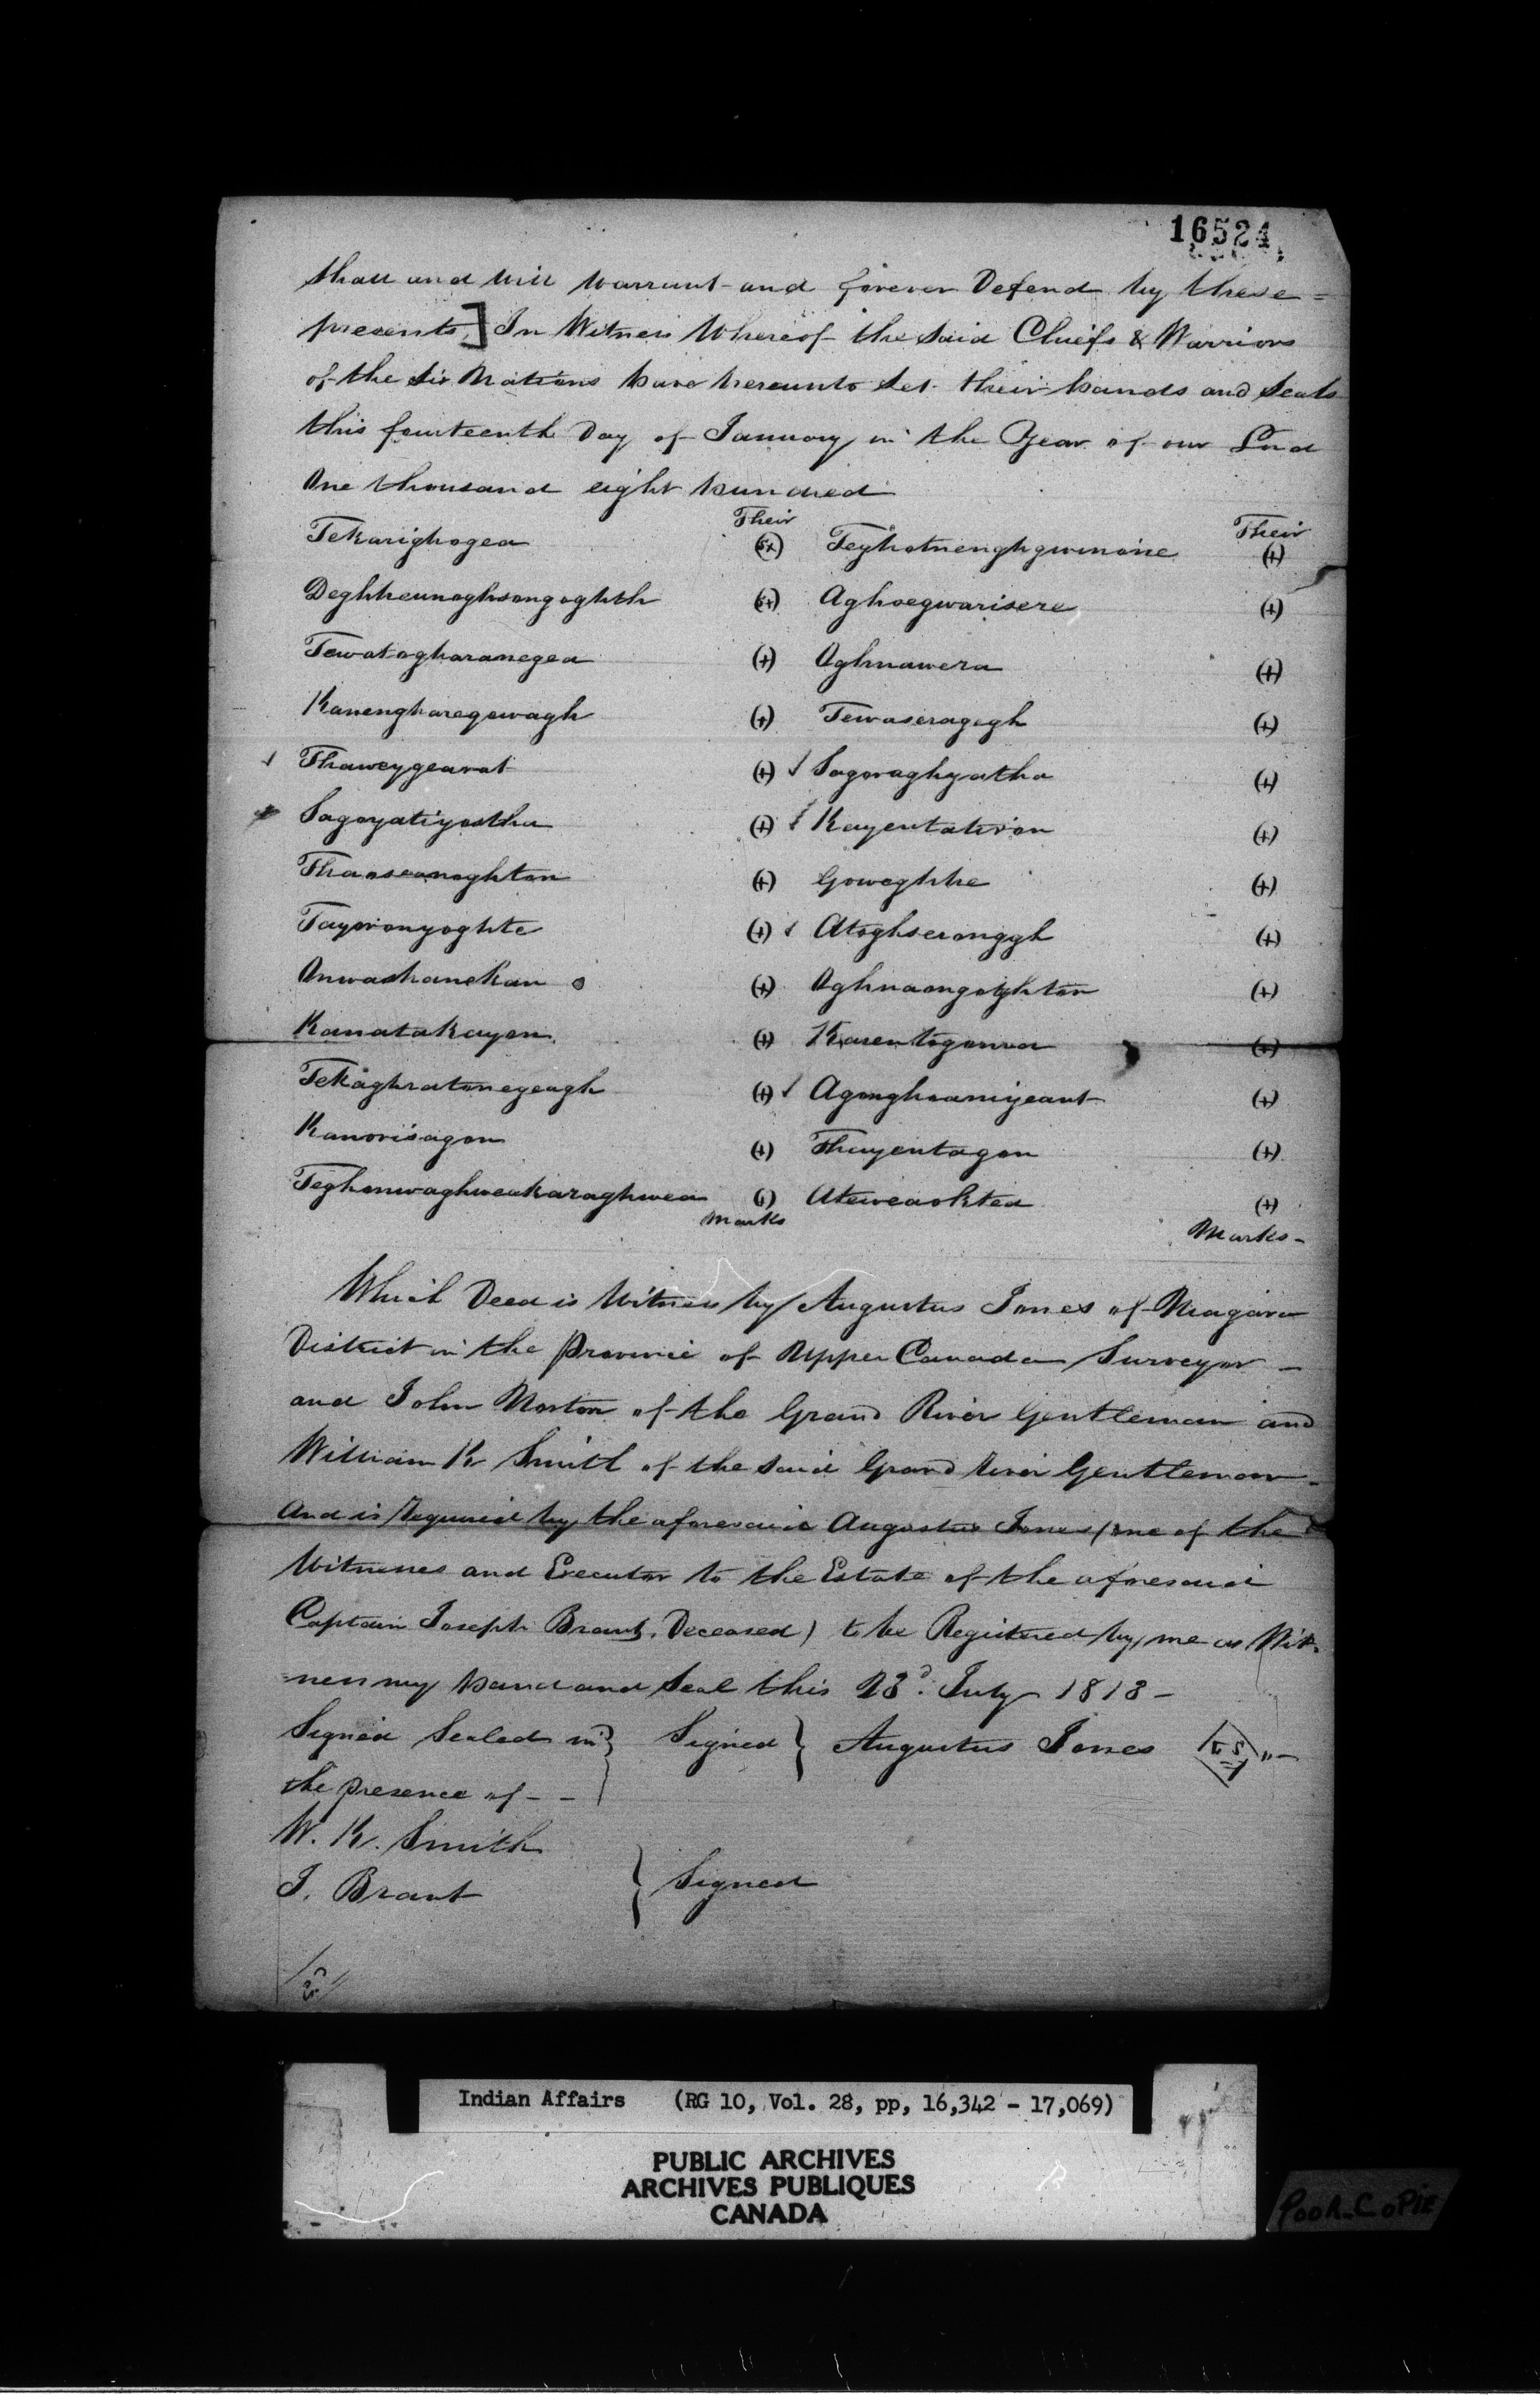 16524
shall and will warrant and forever Defend by these =
presents,] In Witness Whereof the Said Chiefs & Warriors
of the Six Nations have hereunto Set their hands and Seals
this fourteenth Day of January in the Year of our Lord
One thousand eight hundred
Their Their
Tekarighogea (+) Teyhotnenghgwinoine (+)
Deghheunaghsongoghth (+) Aghoegwarisere (+)
Tewatagharanegea (+) Oghnawera (+)
Kanengharegowagh (+) Tewaseragegh (+)
Thaweygearat (+) Sagoraghyatha (+)
Sagoyatiyostha (+) Kayentatiron (+)
Thaoseanoghton (+) Goweghhe (+)
Tayoronyoghte (+) Atoghseronggh (+)
Onwashanekan (+) Oghnaongoghton (+)
Kanatakayon (+) Karentogonra (+)
Tekaghratonegeagh (+) Agonghsaniyeant (+)
Kanorisagon (+) Thayentagon (+)
Teghonwaghweakaraghwea (+) Ateweaoktea (+)
Marks Marks -
Which Deed is Witness by Augustus Jones of Niagara
District in the Province of Upper Canada Surveyor -
and John Norton of the Grand River Gentleman and
William K Smith of the Said Grand River Gentleman -
And is Required by the aforesaid Augustus Jones (one of the
Witnesses and Executor to the Estate of the aforesaid
Captain Joseph Brant, Deceased) to be Registered by me as Wit-
=ness my hand and Seal this 23d. July 1813 -
Signed Sealed in } Signed } Augustus Jones LS
the presence of - -
W. K. Smith
J. Brant } Signed
Indian Affairs (RG 10, Vol. 28, pp, 16,342 - 17,069)
PUBLIC ARCHIVES
ARCHIVES PUBLIQUES
CANADA
POOR COPIE